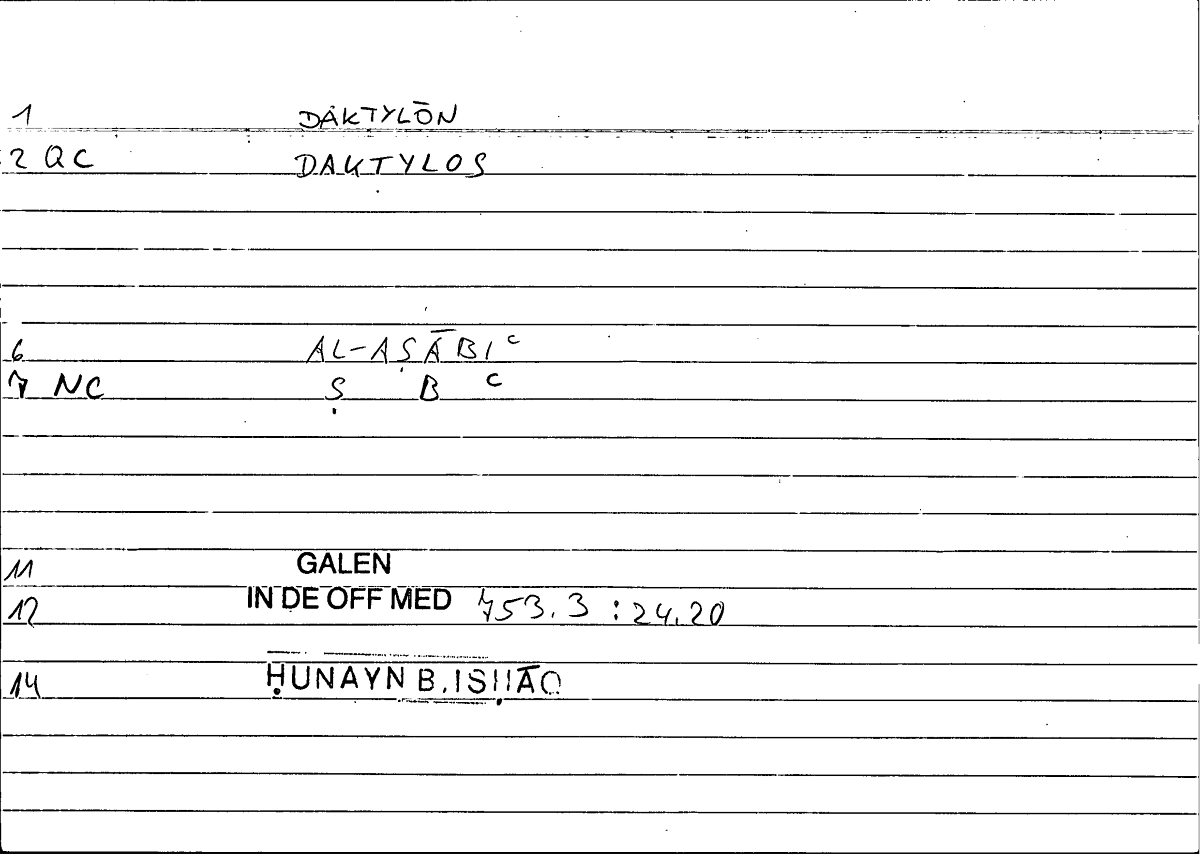 1 DAKTYLŌN
2 QC DAKTYLOS
6 AL-AṢĀBIᶜ
7 NC Ṣ B ᶜ
11 GALEN
12 IN DE OFF MED 753.3 : 24.20
14 ḤUNAYN B. ISḤĀQ